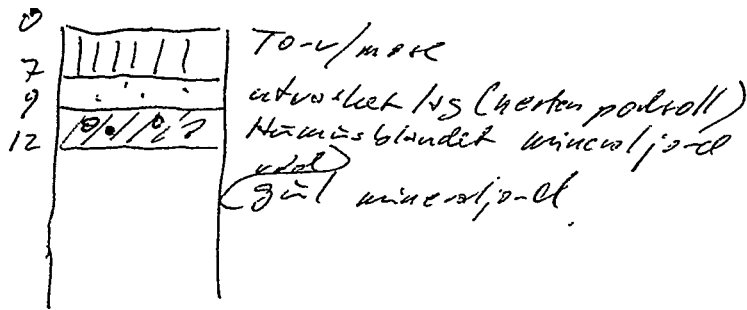 0
7
9
12
Torv/mose
utvasket lag (nesten podsoll)
Humusblandet mineraljord
rød
gul mineraljord.